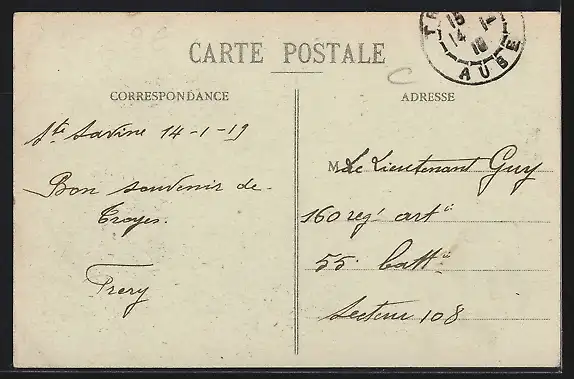 CARTE POSTALE
CORRESPONDANCE
ADRESSE
15
14 1
19
AUBE
Ste Savine 14-1-19
Bon souvenir de
Troyes.
M. le Lieutenant Guy
160 reg' art ie
55. Batt ie
Secteur 108